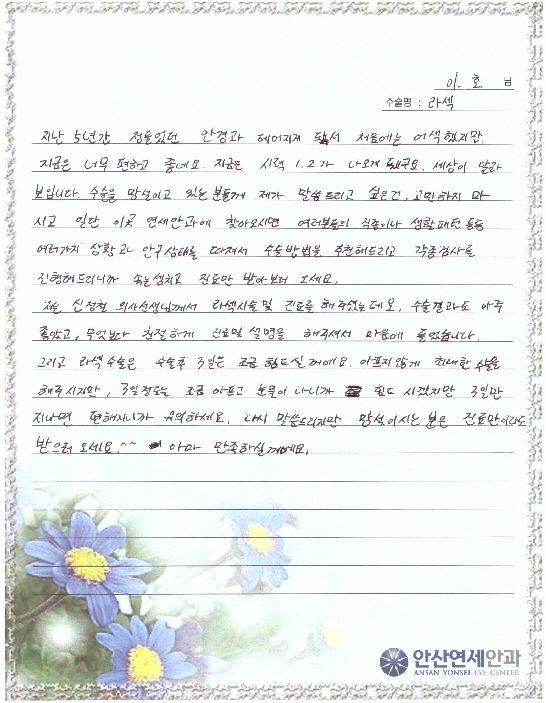 이. 호 님
수술명 : 라섹
지난 5년간 정들었던 안경과 헤어지게 되서 처음에는 어색했지만,
지금은 너무 편하고 좋네요. 지금은 시력 1.2가 나오게 됐구요. 세상이 달라
보입니다. 수술을 망설이고 있는 분들께 제가 말씀드리고 싶은건, 고민하지 마
시고 일단 이곳 연세안과에 찾아오시면 여러분들의 직종이나 생활패턴 등등
여러가지 상황과 안구상태를 따져서 수술방법을 추천해드리고 각종검사를
진행해드리니까 속는셈치고 진료만 받아보러 오세요.
저는 신정철 의사선생님께서 라섹시술및 진료를 해주셨는데요, 수술결과도 아주
좋았고, 무엇보다 친절하게 진료및 설명을 해주셔서 마음에 들었습니다.
그리고 라섹수술은 수술후 3일은 조금 힘드실꺼에요. 아프지않게 최대한 수술을
해주시지만, 3일정도는 조금 아프고 눈물이 나니까 힘드시겠지만 3일만
지나면 편해지니까 유의하세요. 다시 말씀드리지만 망설이시는 분은 진료만이라도
받으러 오세요.^^ 아마 만족하실꺼에요.
안산연세안과
ANSAN YONSEI EYE CENTER